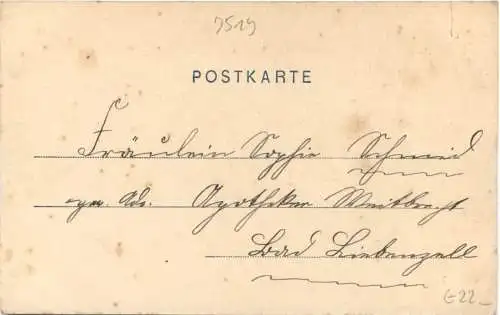 7519
POSTKARTE
Fräulein Sophie Schmid
Adr. Apotheker Weitbrecht
Bad Liebenzell
E22_